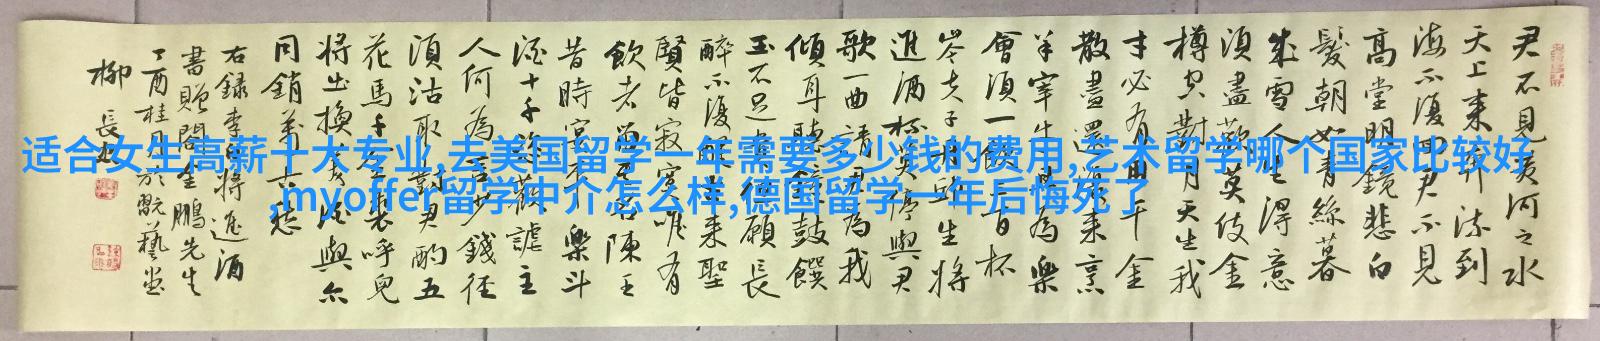 适合女生高薪十大专业,去美国留学一年需要多少钱的费用,艺术留学哪个国家比较好
,myoffer留学中介怎么样,德国留学一年后悔死了
君不見黃河之水
天上来奔流到
海不復回君不見
高堂明鏡悲白
髮朝如青絲暮
成雪人生得意
須盡歡莫使金
樽空對月天生我
才必有用千金
散盡還復来烹
羊宰牛且為樂
會須一飲三百杯
岑夫子丹丘生將
進酒杯莫停與君
歌一曲請君為我
傾耳聽鐘鼓饌
玉不足貴願長
醉不復醒古来聖
賢皆寂寞唯有
飲者留其名陳王
昔時宴平樂斗
酒十千恣歡謔主
人何為言少錢徑
須沽取對君酌五
花馬千金裘呼兒
將出換美酒與尔
同銷萬古愁
右録李白將進酒
書贈閻金鵬先生
丁酉桂月於翫藝堂
柳長